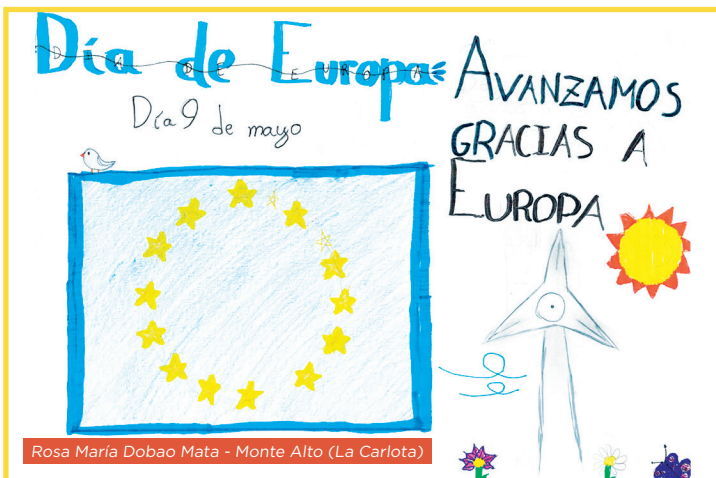 Día de Europa
DIA DE EUROPA
Día 9 de mayo
AVANZAMOS
GRACIAS A
EUROPA
Rosa María Dobao Mata - Monte Alto (La Carlota)